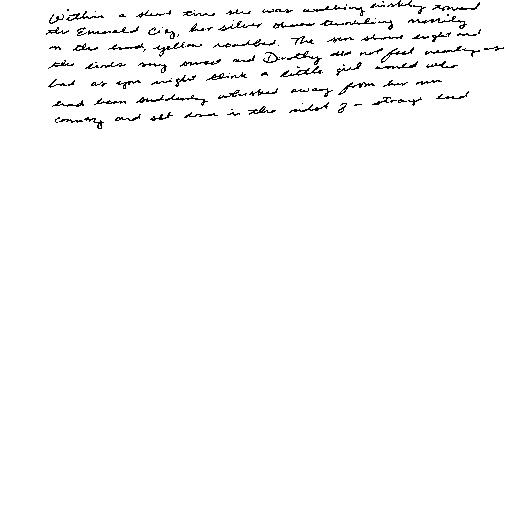 Within a short time she was walking briskly toward
the Emerald City, her silver shoes tinkling merrily
on the hard, yellow roadbed. The sun shone bright and
the birds sang sweet and Dorothy did not feel nearly as
bad as you might think a little girl would who
had been suddenly whisked away from her own
country and set down in the midst of a strange land